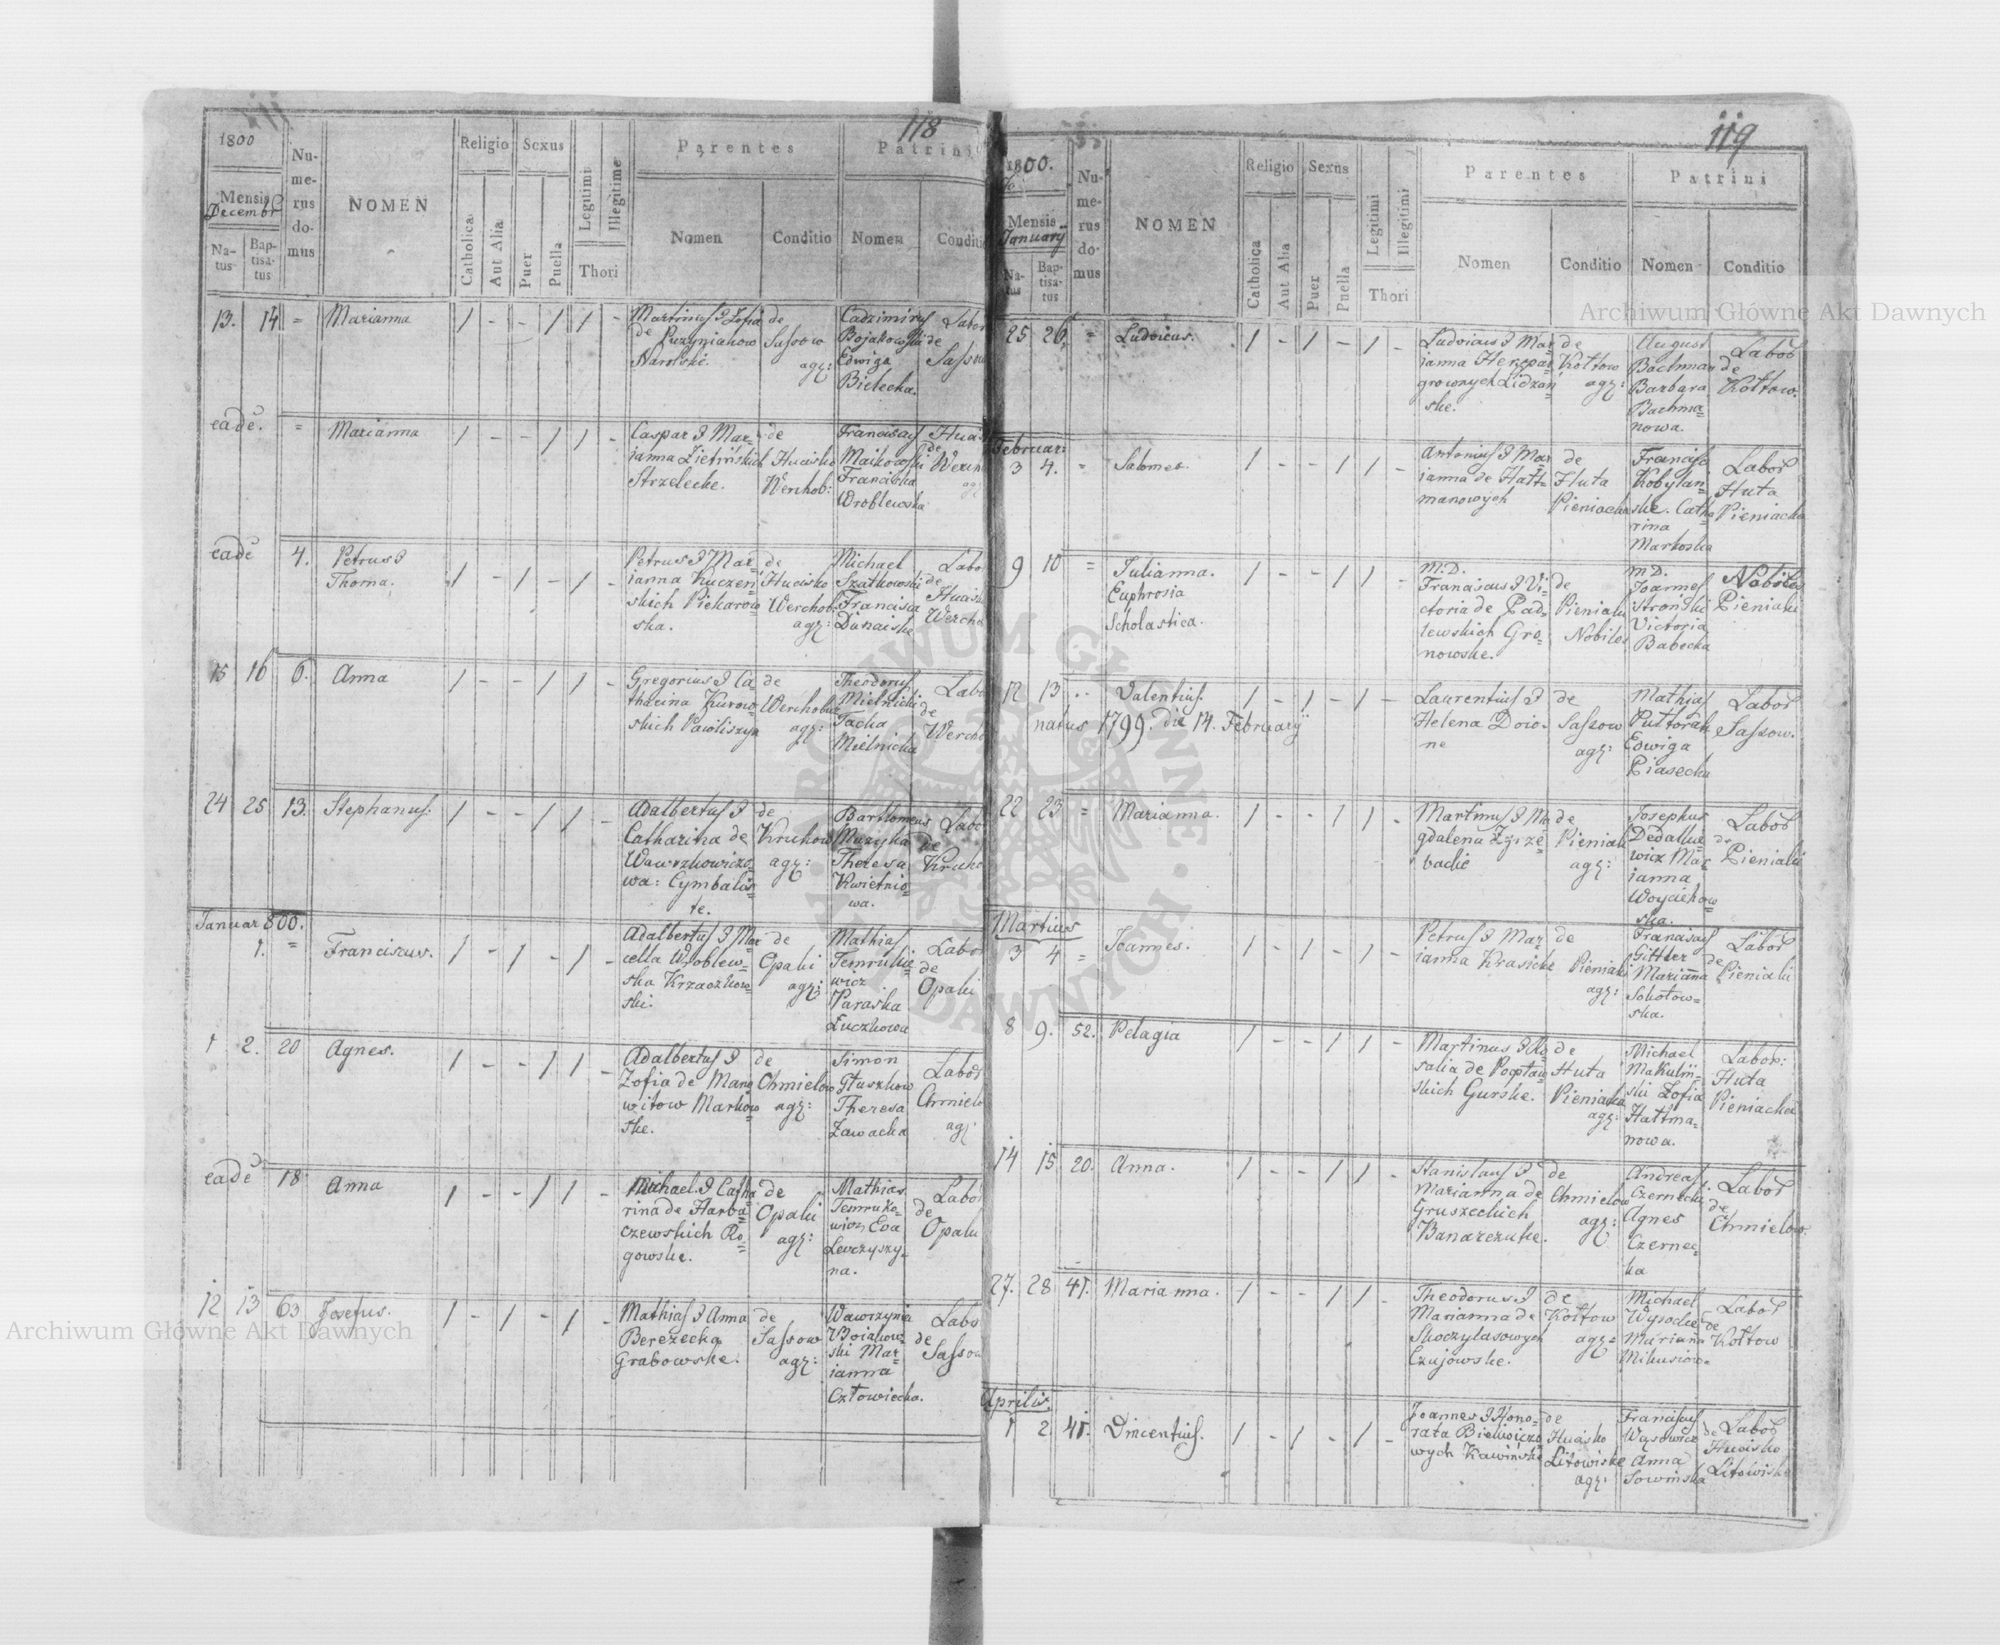 118
1800
Mensis
Decembr
Na-
tus
Bap-
tisa-
tus
Nu-
me-
rus
do-
mus
NOMEN
Religio
Catholica
Aut Alia
Sexus
Puer
Puella
Legitimi
Illegitime
Thori
Parentes
Nomen
Conditio
Patrini
Nomen
Conditio
13. 14 = Marianna / - - / / -
de
Sassow
agr:
Bojakowski
Edwiga
Bielecka.
de
eade. = Marianna / - - / / -
Caspar & Mar=
ianna
Strzelecke.
de
Hucisko
Werchob:
Franciscus
Maikowski
Francisca
Wroblewska
eade 4. Petrus &
Thoma. / - / - / -
Petrus & Mar=
ianna Kuczeń
skich Piekarow
ska.
de
Hucisko
Werchob.
agr:
Michael
Szatkowski
Francisca
Dunaiska
15 16 6. Anna / - - / / -
Gregorius & Ca
tharina Kurow=
skich Pawliszyn
de
agr:
Theodorus
Mielnicki
Tacka
Mielnicka
24 25 13. Stephanus. / - / - / -
Adalbertus &
Catharina de
Wawrzkowiczo
wa: Cymbalis
te.
de
Kruhow
agr:
Bartlomeus
Muzyka
Theresa
Kwietnio=
wa.
Januar 800.
1. = Franciscus. / - / - / -
Adalbertus & Mar
cella Wroblew=
ska Krzaczkow=
ski.
de
Opaki
agr:
Mathias
Temruko
wicz
Paraska
Łuczkowa
Labor
de
Opaki
1 2. 20 Agnes. / - - / / -
Adalbertus &
Zofia de
witow Markow
ske.
de
Chmielow
agr:
Simon
Głuszkow
Theresa
Zawacka
Labor
Chmielo
agr
eade 18. Anna / - - / / -
Michael & Catha
rina de Harba=
czewskich Ro=
gowske.
de
Opaki
agr:
Mathias
Temruko=
wicz Eva
Lewczyszy=
na.
Labor
de
Opaki
12 13 63. Josefus. / - / - / -
Mathias & Anna
Berezecka
Grabowske.
de
Sassow
agr:
Wawrzyniec
Boiakow=
ski Mar=
ianna
Człowiecka.
de
119
1800.
Mensis
January
Na-
tus
Bap-
tisa-
tus
Nu-
me-
rus
do-
mus
NOMEN
Religio
Catholica
Aut Alia
Sexus
Puer
Puella
Legitimi
Illegitimi
Thori
Parentes
Nomen
Conditio
Patrini
Nomen
Conditio
25 26 = Ludvicus. / - / - / -
Ludvicus & Mar=
ianna
ske.
de
Kołtow
agr:
August
Bachman
Barbara
Bachma=
nowa.
Labor
de
Kołtow.
Februar:
3 4. = Salomea. / - - / / -
Antonius & Mar
ianna de Hałt=
manowych
de
Huta
Pieniacka
Francis.
Kobylan=
ske. Catha
rina
Markoska
Labor
Huta
Pieniacka
9 10 = Julianna.
Euphrosia
Scholastica. / - - / / -
M.D.
Franciscus & Vi=
ctoria de Pad=
lewskich Gro=
nowske.
de
Pieniaki
Nobiles
M.D.
Joannes
Stroński
Victoria
Babecka
Nobiles
Pieniaki
12 13 Valentius. / - / - / -
natus 1799. die 14. February
Laurentius &
Helena Doio=
ne
de
Sassow
agr:
Mathias
Pułtorak
Edwiga
Piasecka
Labor
Sassow.
22 23 = Marianna. / - - / / -
Martinus & Ma
gdalena
de
Pieniaki
agr:
Josephus
wicz Mar=
ianna
Woyciehow
ska.
Labor
de
Pieniaki
Martius
3 4 = Joannes. / - / - / -
Petrus & Mar=
ianna Krasicke
de
Pieniaki
agr:
Franciscus
Gittler
Marianna
Sokołow=
ska.
Labor
de
Pieniaki
8 9. 52. Pelagia / - - / / -
Martinus & Ro
salia de Popław
skich Gurske.
de
Huta
Pieniacka
agr:
Michael
Makulń=
ski Zofia
Hałtma=
nowa.
Labor:
Huta
Pieniacka
14 15 20. Anna. / - - / / -
Stanislaus &
Marianna de
Gruszeckich
Banarzuke.
de
Chmielow
agr:
Andreas
Czernecki
Agnes
Czernec=
ka
Labor
de
Chmielow.
27. 28 41. Marianna. / - - / / -
Theodorus &
Marianna de
Skoczylasowych
Czujowske.
de
Kołtow
agr=
Michael
Wysocki
Marianna
Mikusiow=
Labor
de
Kołtow
Aprilis.
1 2 41. Vincentius. / - / - / -
Joannes & Hono=
rata
wych Kawińske
de
Hucisko
Litowiske
agr:
Franciscus
Wąsowicz
Anna
Sowińska
de Labor
Hucisko
Litowiske
Archiwum Główne Akt Dawnych
Archiwum Główne Akt Dawnych
ARCHIWUM GŁÓWNE AKT DAWNYCH